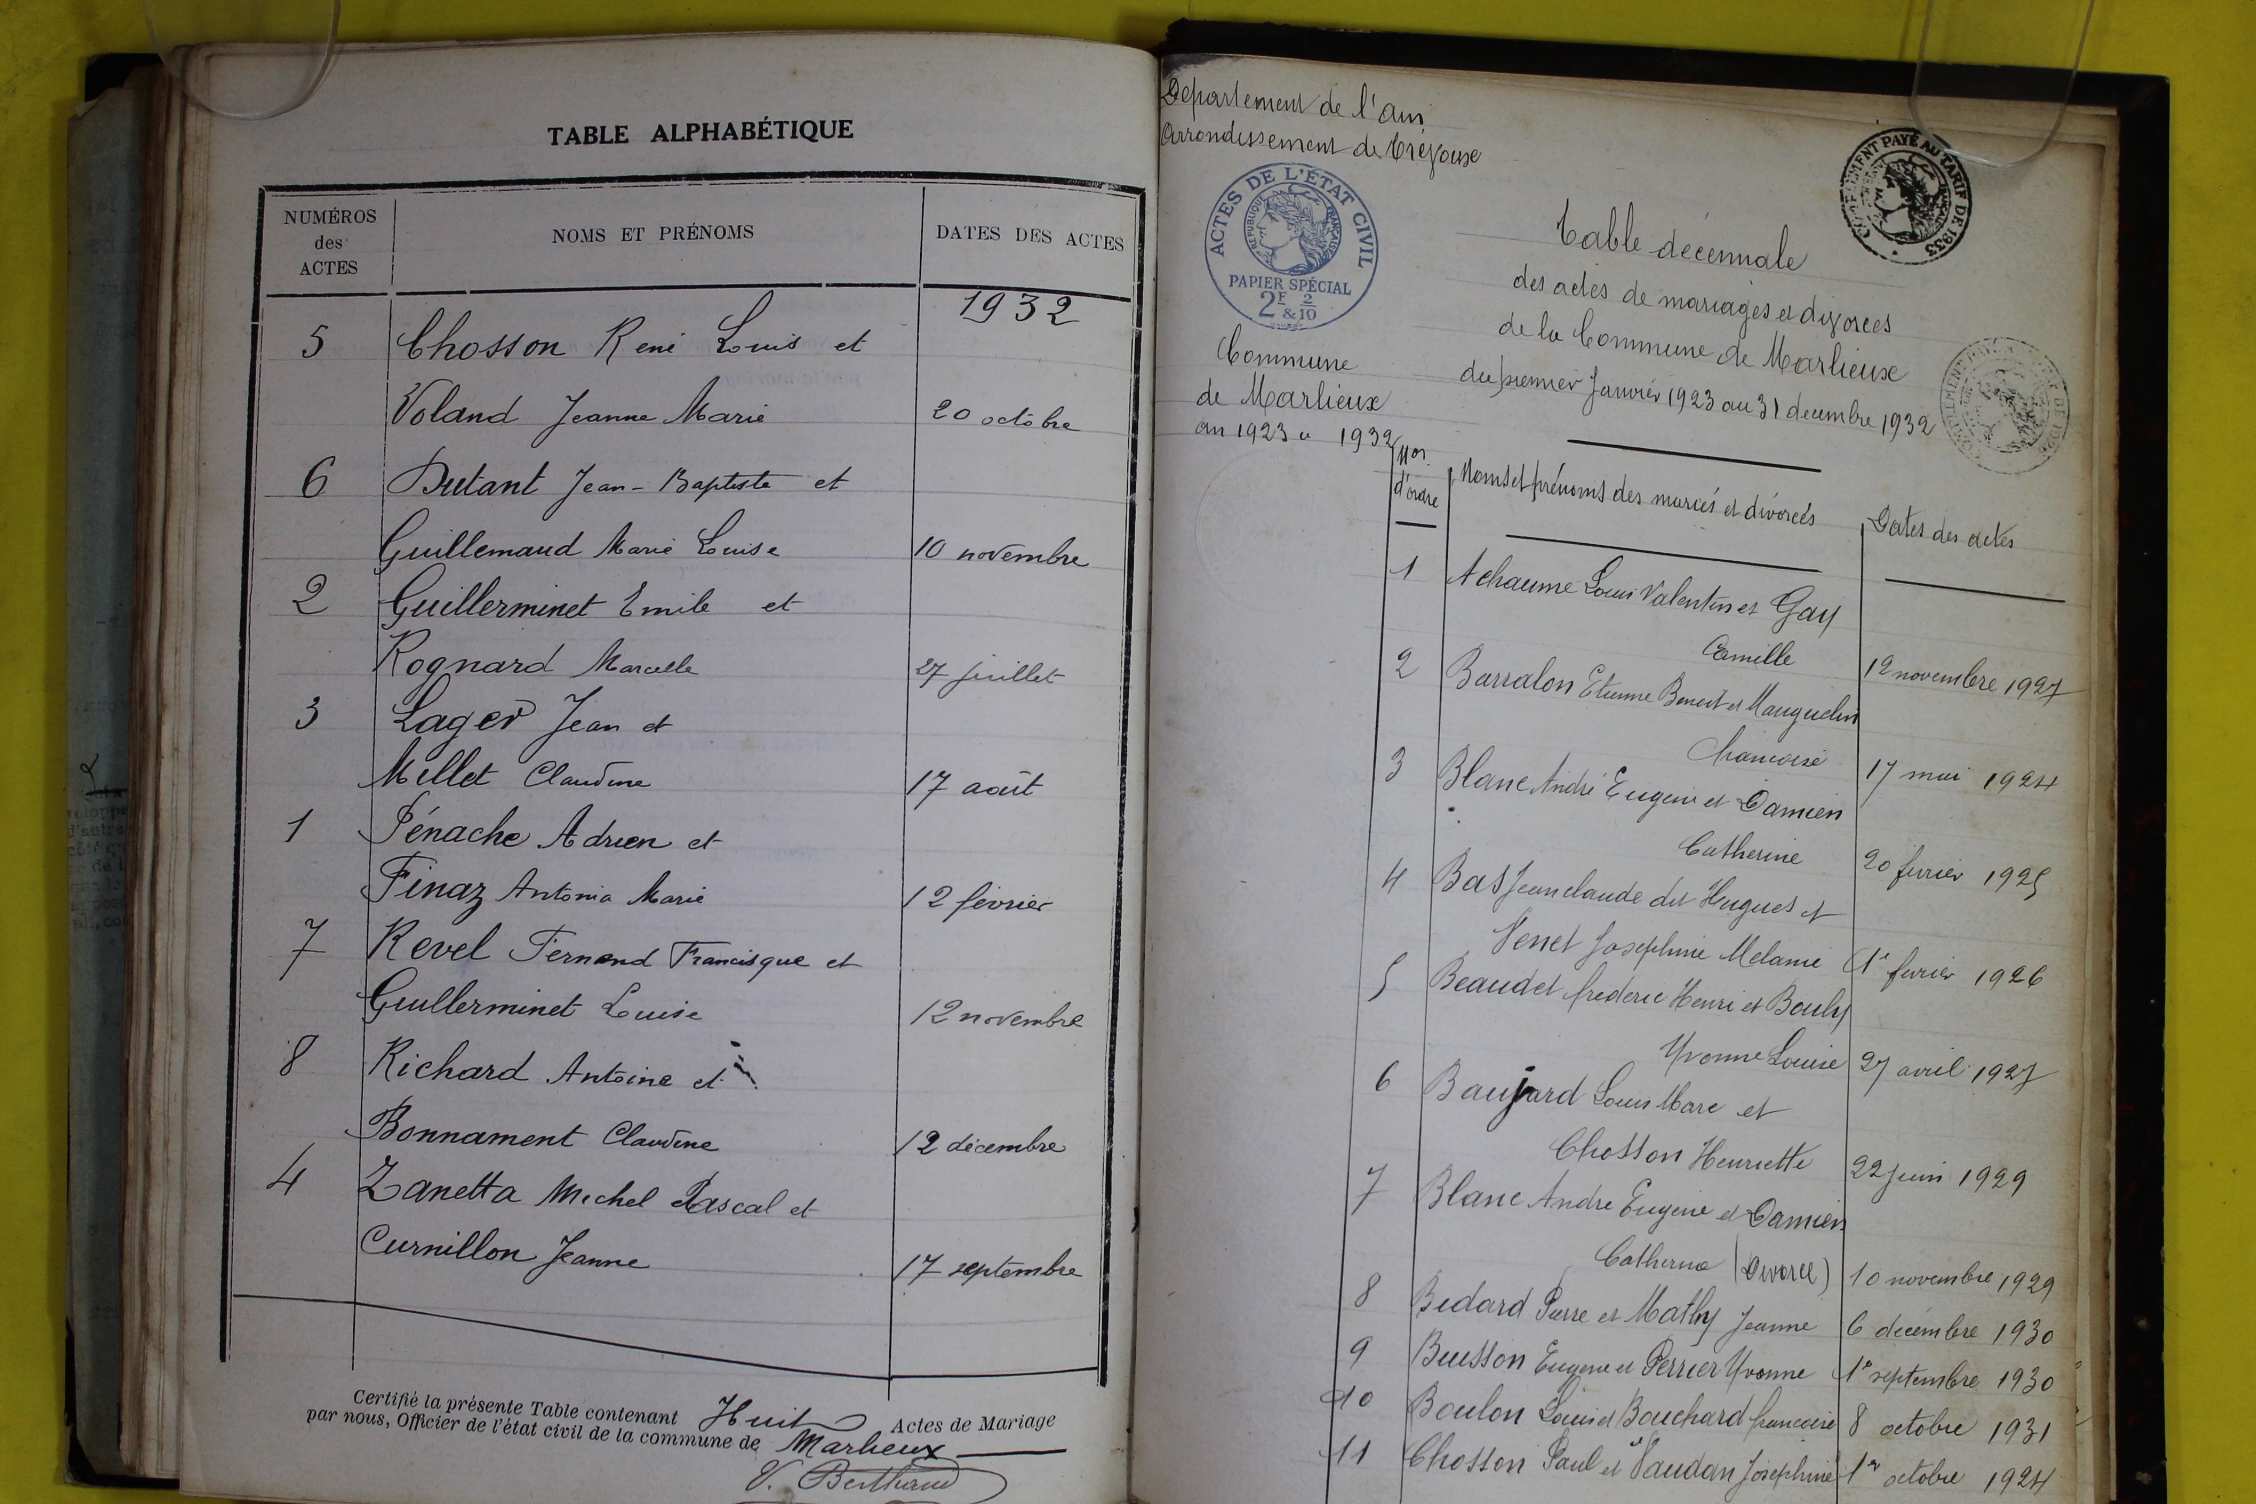 TABLE ALPHABÉTIQUE
NUMÉROS des ACTES
NOMS ET PRÉNOMS
DATES DES ACTES
1932
5 Chosson René Louis et
Voland Jeanne Marie 20 octobre
6 Dutant Jean-Baptiste et
Guillemaud Marie Louise 10 novembre
2 Guillerminet Emile et
Rognard Marcelle 27 juillet
3 Lager Jean et
Millet Claudine 17 août
1 Pénache Adrien et
Finaz Antonia Marie 12 février
7 Revel Fernand Francisque et
Guillerminet Louise 12 novembre
8 Richard Antoine et
Bonnament Claudine 12 décembre
4 Zanetta Michel Pascal et
Curnillon Jeanne 17 septembre
Certifié la présente Table contenant Huit Actes de Mariage
par nous, Officier de l'état civil de la commune de Marlieux
V. Berthaud
Departement de l'ain
Arrondissement de Trévoux
ACTES DE L'ÉTAT CIVIL
REPUBLIQUE FRANÇAISE
PAPIER SPÉCIAL
2F & 2/10
COMPLEMENT PAYÉ AU TARIF DE 1933
Commune
de Marlieux
an 1923 a 1932
Table décennale
des actes de mariages et divorces
de la Commune de Marlieux
du premier Janvier 1923 au 31 decembre 1932
Nos d'ordre
Noms et prénoms des mariés et divorcés
Dates des actes
1 Achaume Louis Valentin et Gay
Camille 12 novembre 1927
2 Barralon Etienne Benoit et Mauguelin
francoise 17 mai 1924
3 Blanc André Eugene et Damien
Catherine 20 fevrier 1925
4 Bas Jean claude dit Hugues et
Venet Josephine Melanie 1e fevrier 1926
5 Beaudet frederic Henri et Bouly
Yvonne Louise 27 avril 1927
6 Baujard Louis Marc et
Chosson Henriette 22 juin 1929
7 Blanc Andre Eugene et Damien
Catherine (Divorce) 10 novembre 1929
8 Bedard Pierre et Mathy Jeanne 6 decémbre 1930
9 Buisson Eugene et Perrier Yvonne 1e septembre 1930
10 Boulon Louis et Bouchard francoise 8 octobre 1931
11 Chosson Paul et Vaudan Josephine 1er octobre 1924